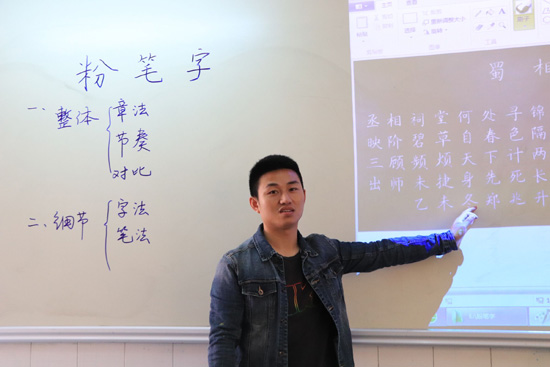 粉笔字
一、整体
章法
节奏
对比
二、细节
字法
笔法
重新调整大小
工具
蜀相
丞相祠堂何处寻锦
映阶碧草自春色隔
三顾频烦天下计两
出师未捷身先死长
乙未冬